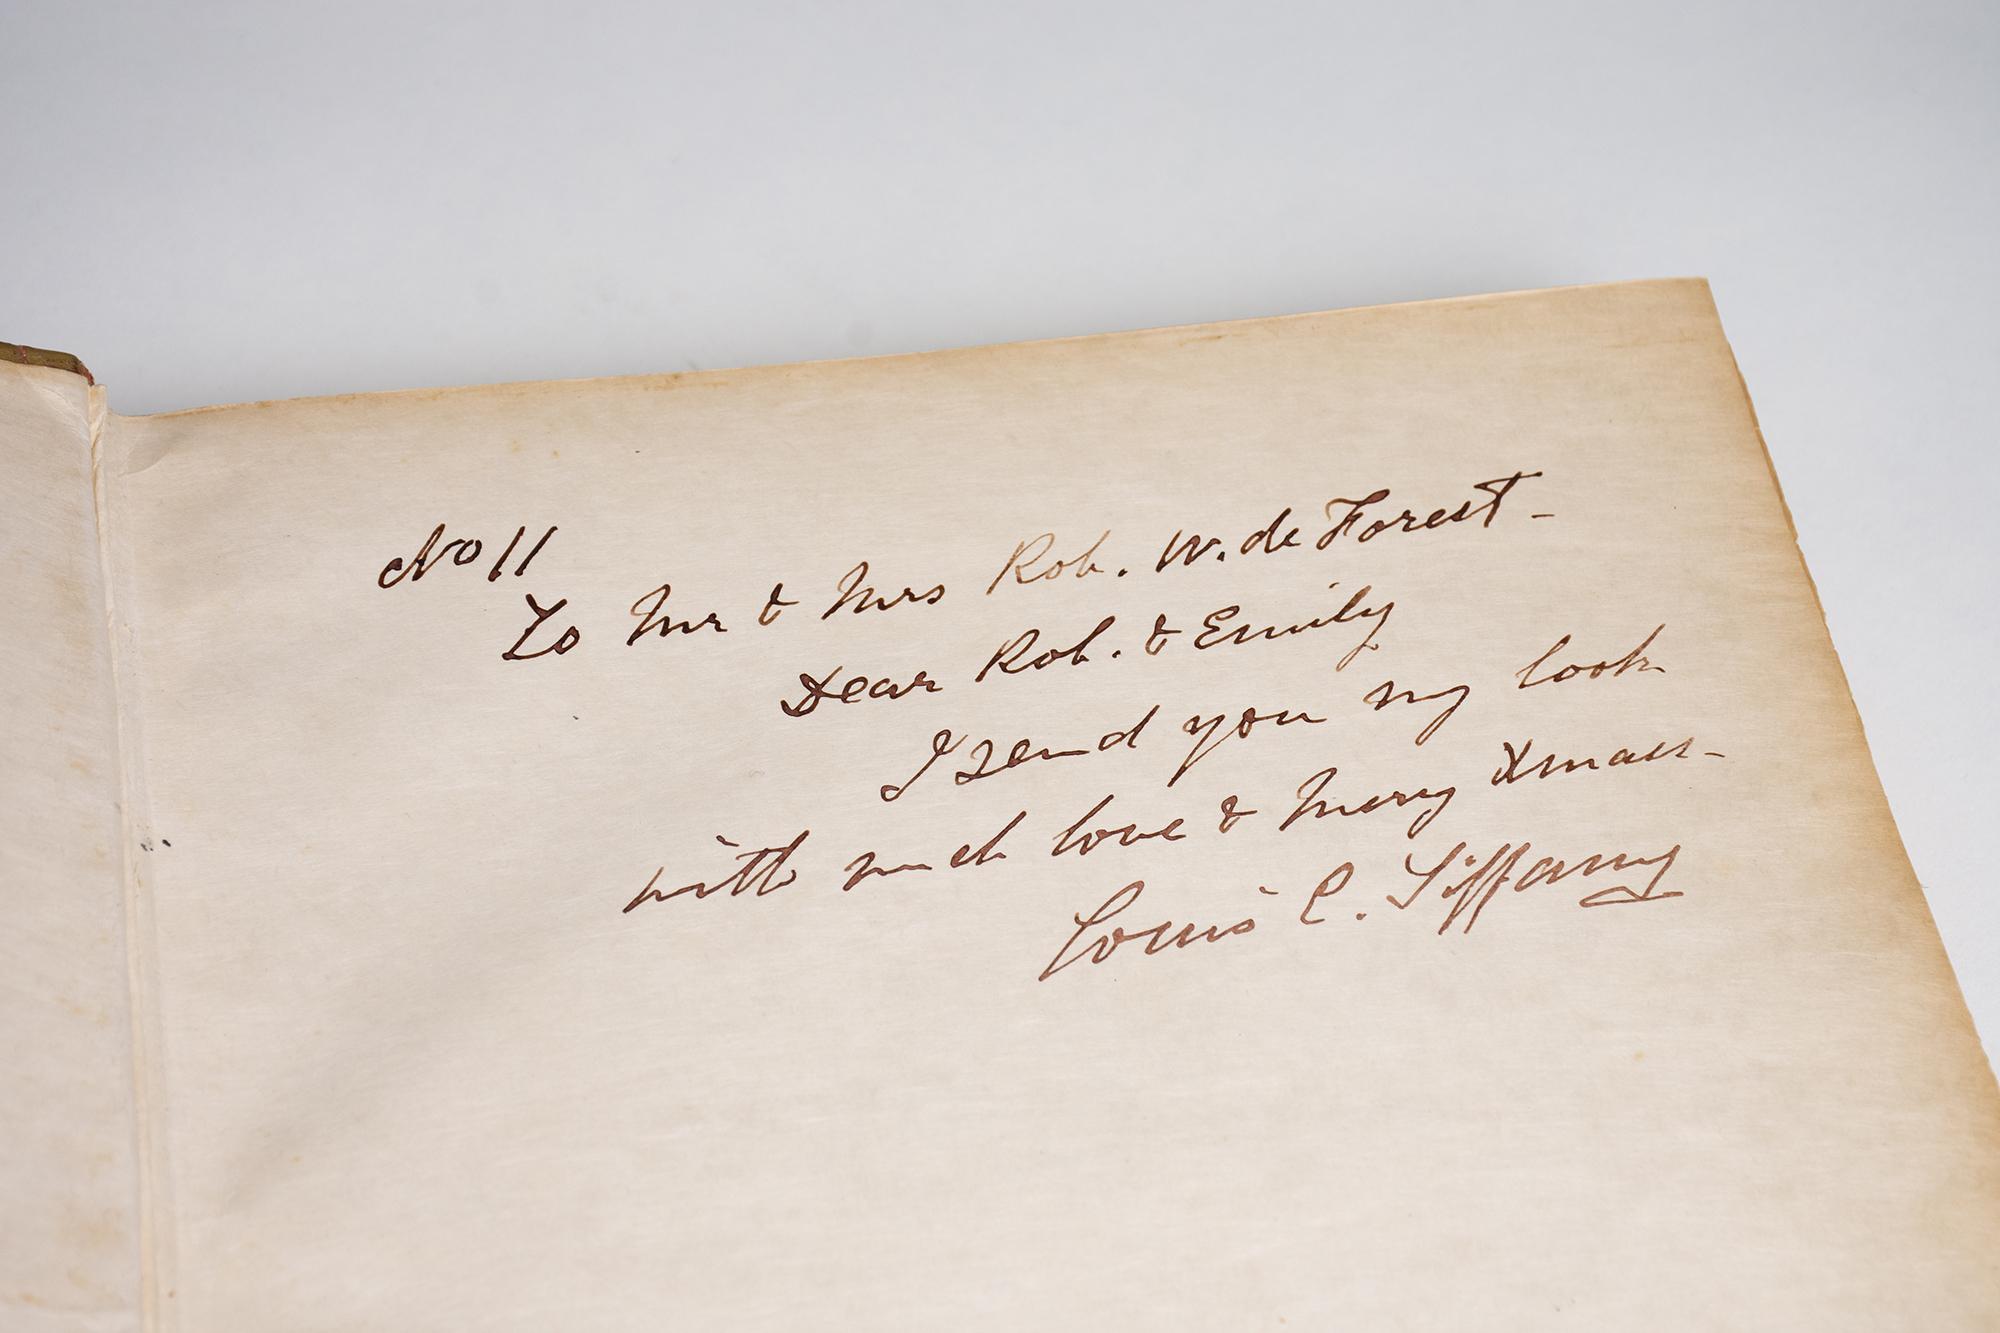 No 11
To Mr & Mrs Rob. W. de Forest -
Dear Rob. & Emily
I send you my book
with much love & Merry Xmass -
Louis C. Tiffany